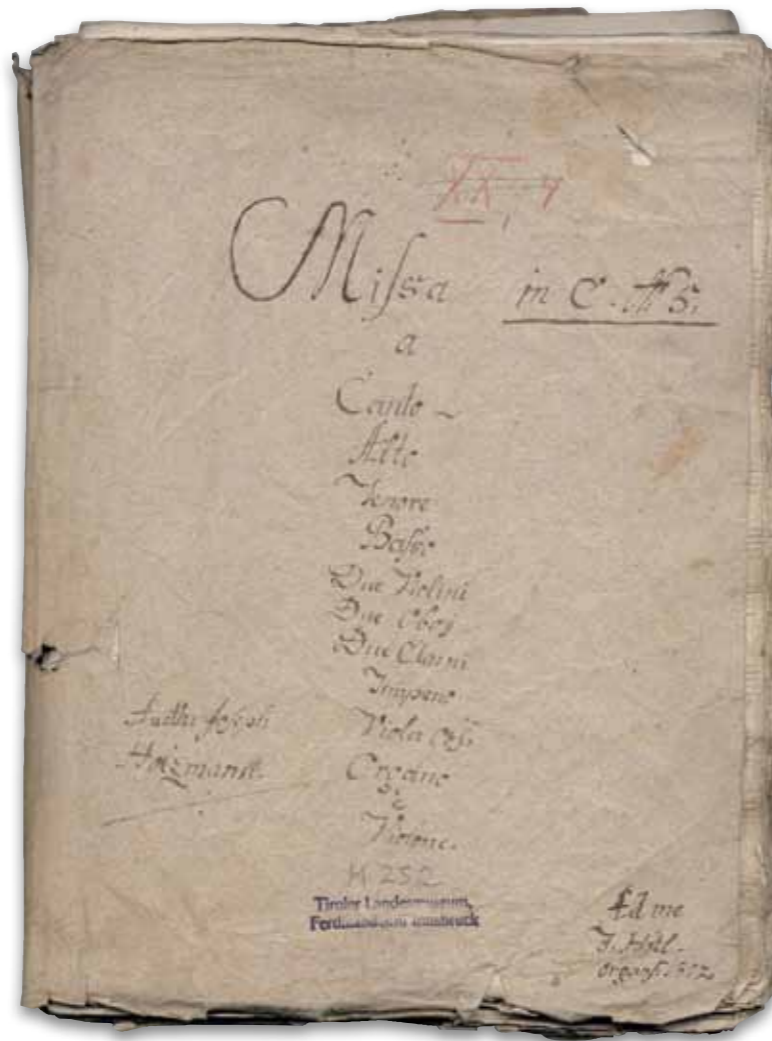 XX, 4
Missa in C. № 5.
a
Canto
Alto
Tenore
Basso
Due Violini
Due Oboj
Due Clarini
Tympano
Viola
Organo
è
Violone.
Joseph
Holzmann.
M 252
Tiroler Landesmuseum,
Ferdinandeum Innsbruck
Ad me